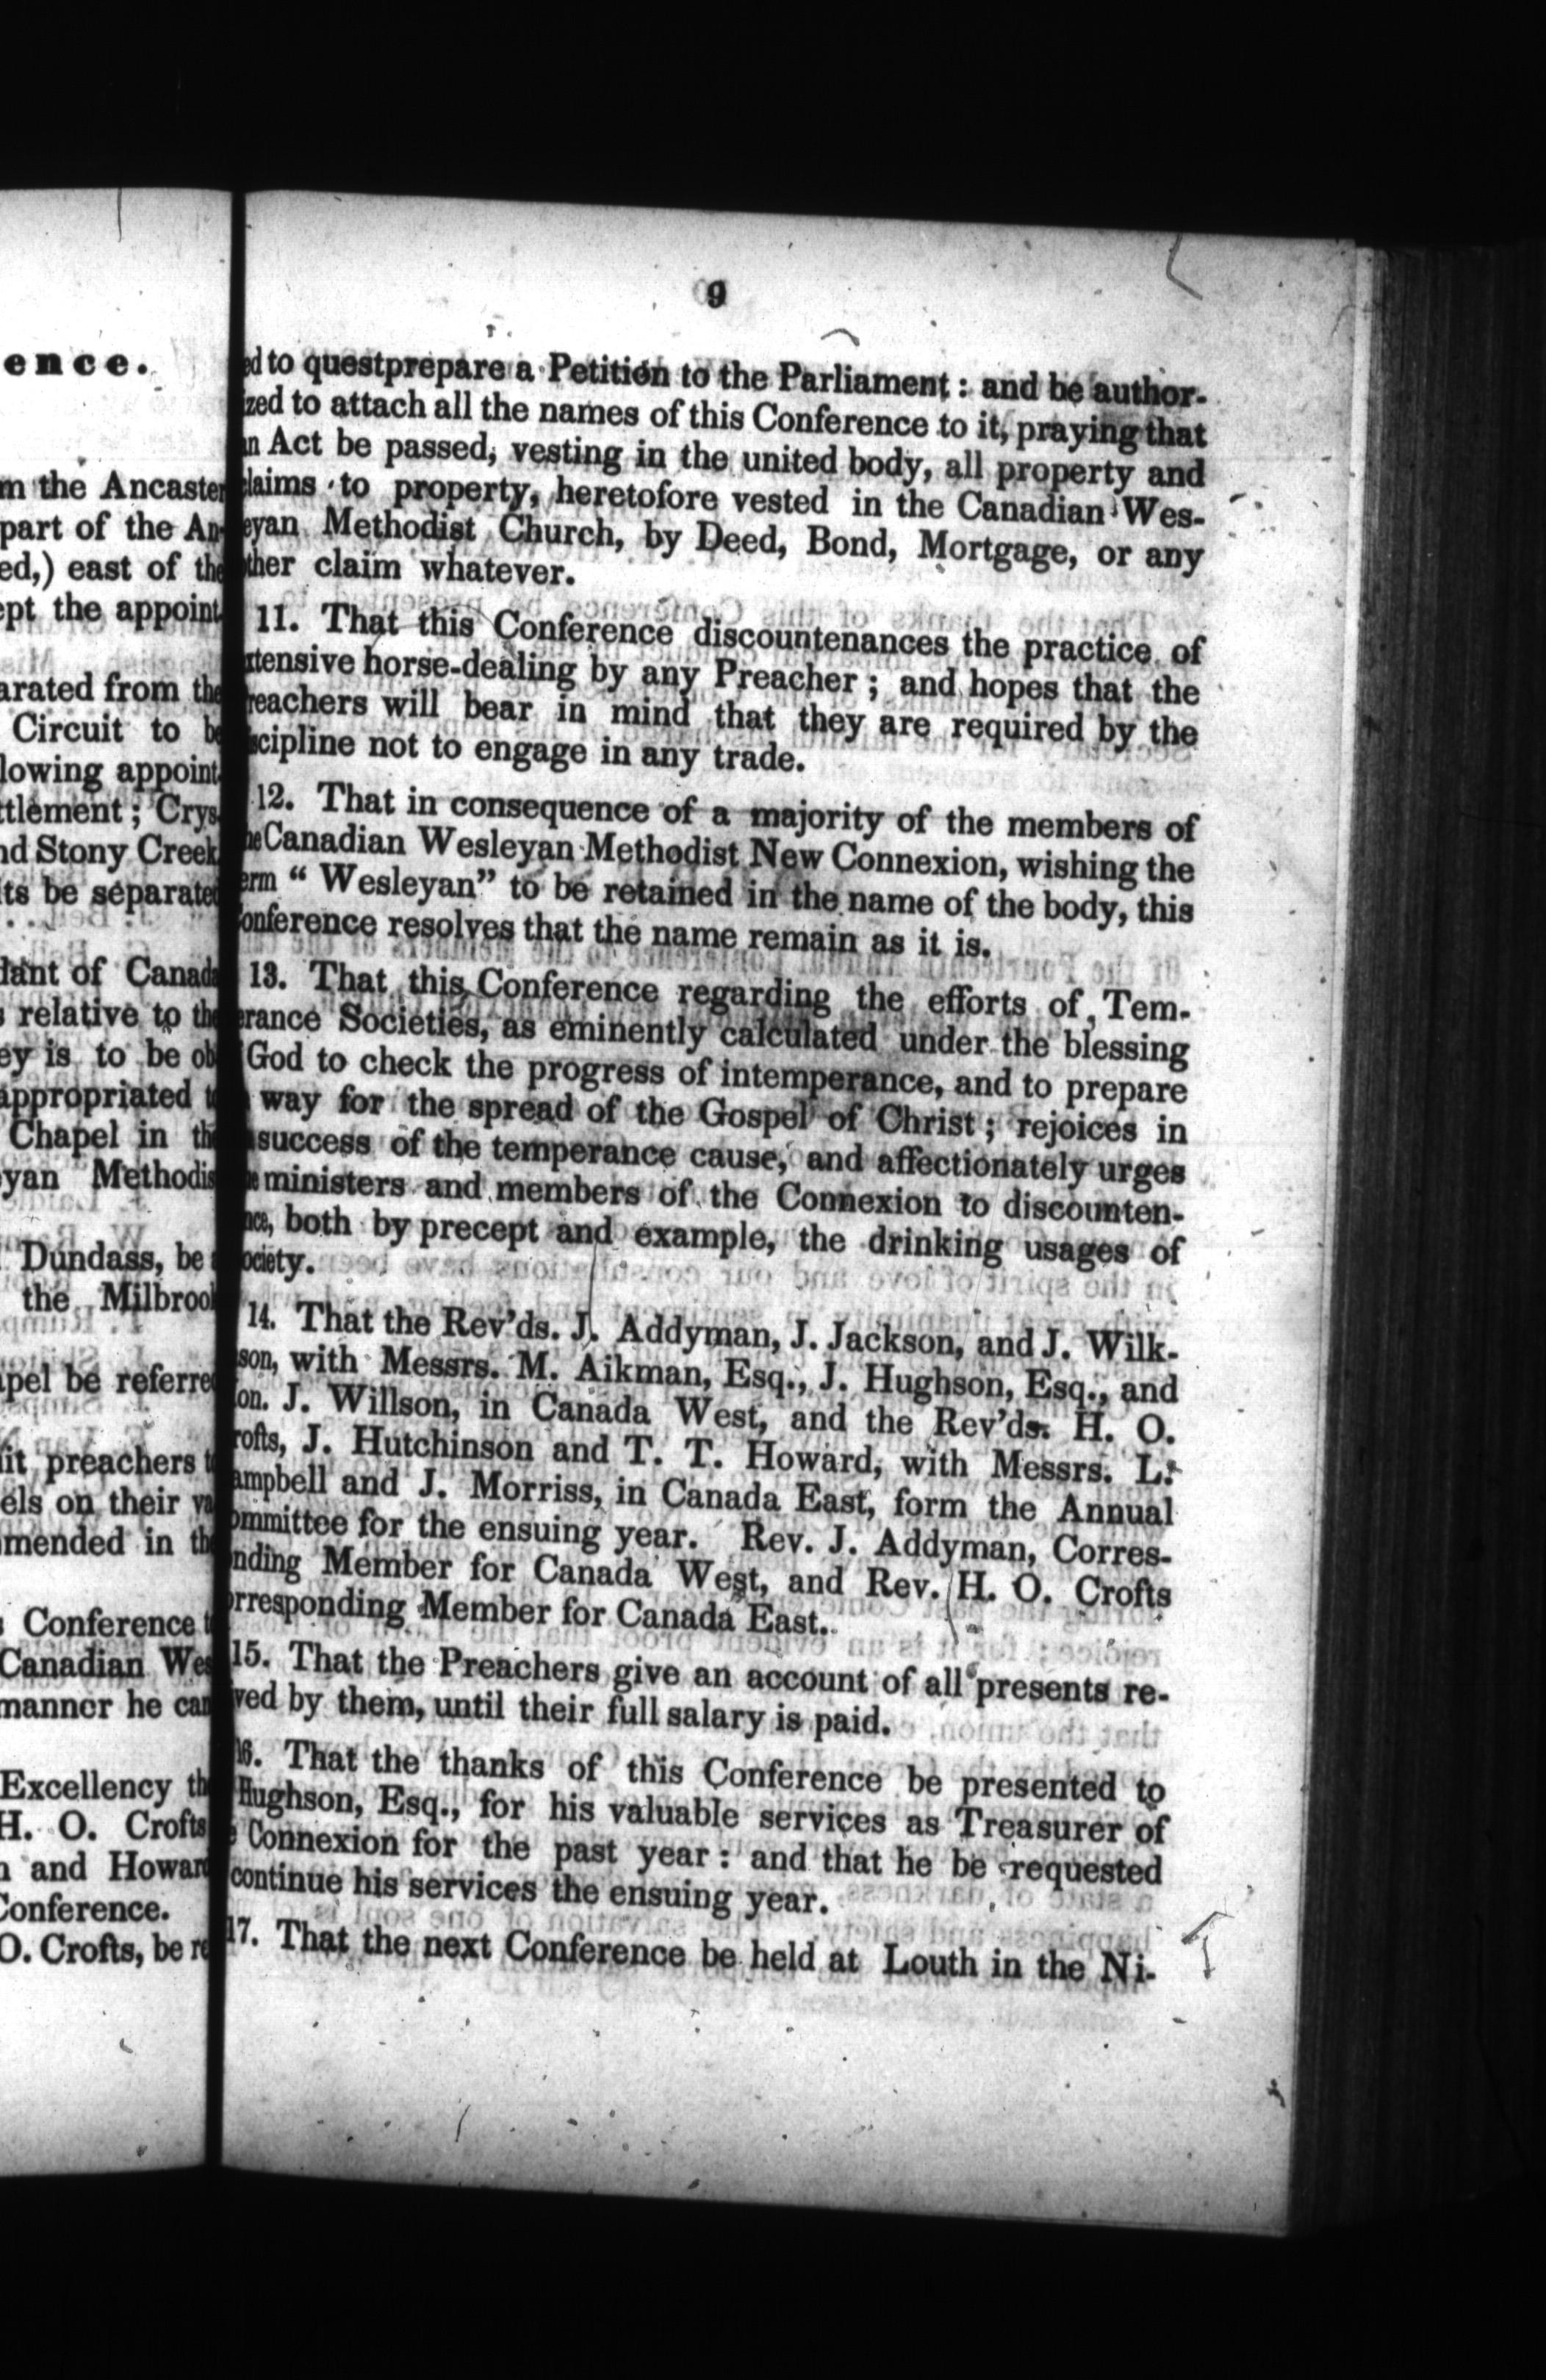 ence.
m the Ancaster
part of the An-
ed,) east of the
ept the appoint
arated from the
Circuit to be
lowing appoint
ttlement; Crys
nd Stony Creek
its be separated
dant of Canada
s relative to the
ey is to be ob
appropriated t
Chapel in the
yan Methodis
Dundass, be a
the Milbrook
apel be referred
it preachers t
els on their va
mended in the
s Conference t
Canadian Wes
manner he can
Excellency th
H. O. Crofts
n and Howard
Conference.
O. Crofts, be re
9
ed to questprepare a Petition to the Parliament: and be author-
zed to attach all the names of this Conference to it, praying that
an Act be passed, vesting in the united body, all property and
claims to property, heretofore vested in the Canadian Wes-
eyan Methodist Church, by Deed, Bond, Mortgage, or any
ther claim whatever.
11. That this Conference discountenances the practice of
xtensive horse-dealing by any Preacher; and hopes that the
reachers will bear in mind that they are required by the
scipline not to engage in any trade.
12. That in consequence of a majority of the members of
he Canadian Wesleyan Methodist New Connexion, wishing the
erm "Wesleyan" to be retained in the name of the body, this
Conference resolves that the name remain as it is.
13. That this Conference regarding the efforts of Tem-
erance Societies, as eminently calculated under the blessing
God to check the progress of intemperance, and to prepare
way for the spread of the Gospel of Christ; rejoices in
success of the temperance cause, and affectionately urges
e ministers and members of the Connexion to discounten-
nce, both by precept and example, the drinking usages of
ociety.
14. That the Rev'ds. J. Addyman, J. Jackson, and J. Wilk-
son, with Messrs. M. Aikman, Esq., J. Hughson, Esq., and
on. J. Willson, in Canada West, and the Rev'ds. H. O.
rofts, J. Hutchinson and T. T. Howard, with Messrs. L.
ampbell and J. Morriss, in Canada East, form the Annual
ommittee for the ensuing year. Rev. J. Addyman, Corres-
nding Member for Canada West, and Rev. H. O. Crofts
orresponding Member for Canada East.
15. That the Preachers give an account of all presents re-
ived by them, until their full salary is paid.
16. That the thanks of this Conference be presented to
Hughson, Esq., for his valuable services as Treasurer of
e Connexion for the past year: and that he be requested
continue his services the ensuing year.
17. That the next Conference be held at Louth in the Ni-